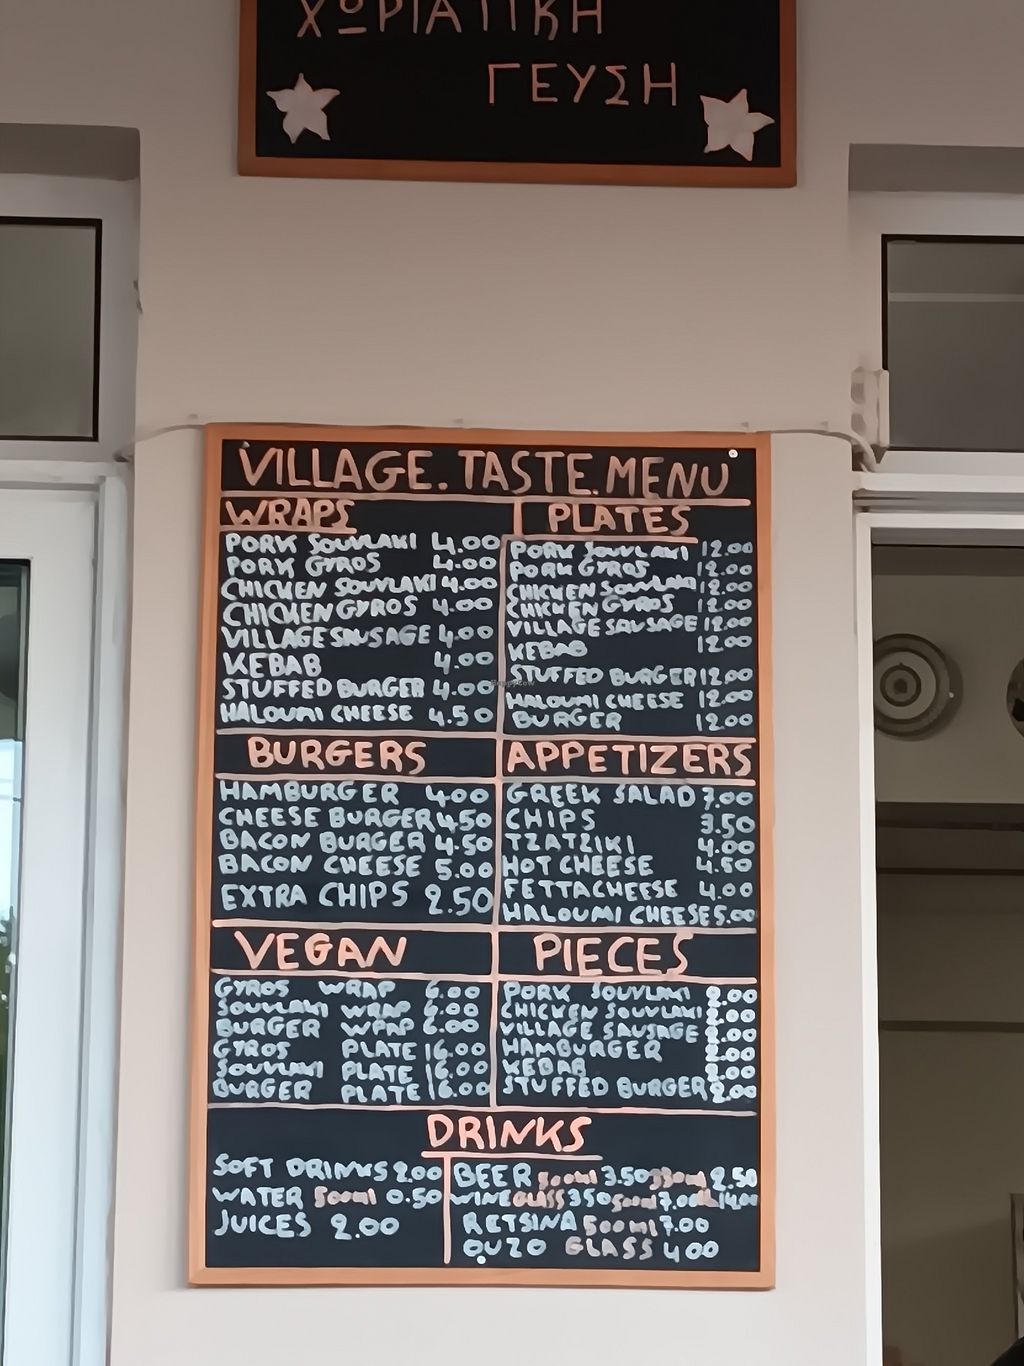 ΧΩΡΙΑΤΙΚΗ
ΓΕΥΣΗ
VILLAGE. TASTE. MENU
WRAPS
PORK SOUVLAKI 4.00
PORK GYROS 4.00
CHICKEN SOUVLAKI 4.00
CHICKEN GYROS 4.00
VILLAGE SAUSAGE 4.00
KEBAB 4.00
STUFFED BURGER 4.00
HALOUMI CHEESE 4.50
PLATES
PORK SOUVLAKI 12.00
PORK GYROS 12.00
CHICKEN SOUVLAKI 12.00
CHICKEN GYROS 12.00
VILLAGE SAUSAGE 12.00
KEBAB 12.00
STUFFED BURGER 12.00
HALOUMI CHEESE 12.00
BURGER 12.00
BURGERS
HAMBURGER 4.00
CHEESE BURGER 4.50
BACON BURGER 4.50
BACON CHEESE 5.00
EXTRA CHIPS 2.50
APPETIZERS
GREEK SALAD 7.00
CHIPS 3.50
TZATZIKI 4.00
HOT CHEESE 4.50
FETTA CHEESE 4.00
HALOUMI CHEESE 5.00
VEGAN
GYROS WRAP 6.00
SOUVLAKI WRAP 6.00
BURGER WRAP 6.00
GYROS PLATE 16.00
SOUVLAKI PLATE 16.00
BURGER PLATE 16.00
PIECES
PORK SOUVLAKI 2.00
CHICKEN SOUVLAKI 2.00
VILLAGE SAUSAGE 2.00
HAMBURGER 2.00
KEBAB 2.00
STUFFED BURGER 2.00
DRINKS
SOFT DRINKS 2.00
WATER 500ml 0.50
JUICES 2.00
BEER 500ml 3.50 330ml 2.50
WINE GLASS 3.50 500ml 7.00 14.00
RETSINA 500ml 7.00
OUZO GLASS 4.00